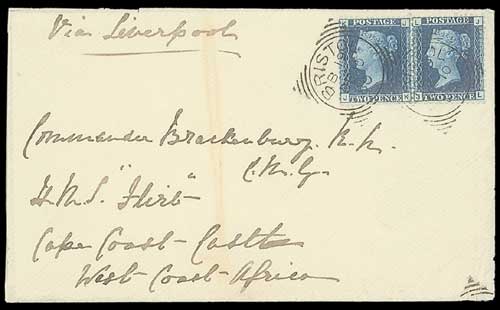 Via Liverpool
K J L J
POSTAGE POSTAGE
BRISTOL
TWO PENCE TWO PENCE
J K J L
Commander Brackenbury. R.N.
C.M.G.
H.M.S. "Flirt"
Cape Coast Castle
West Coast Africa